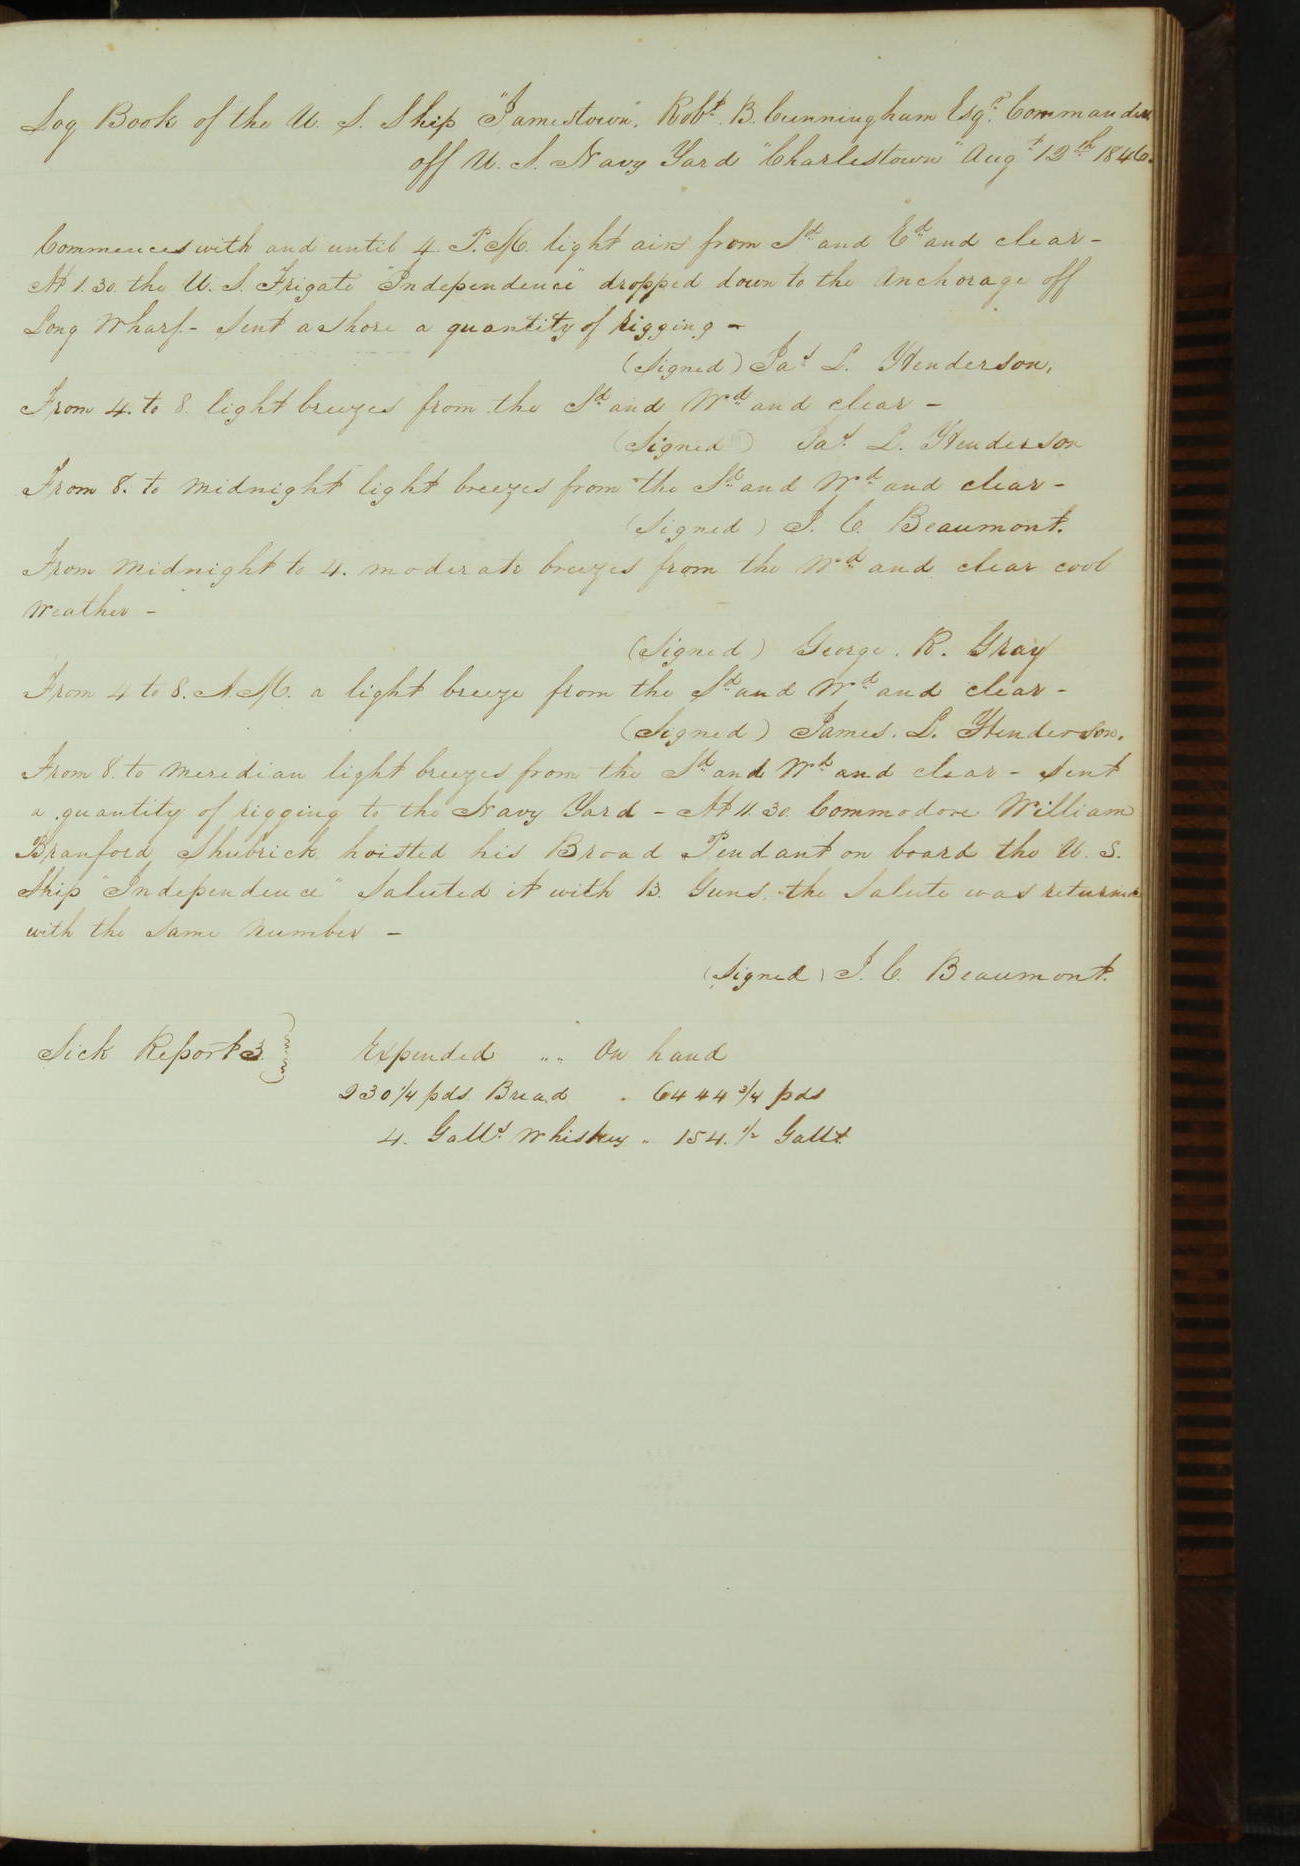 Log Book of the U. S. Ship "Jamestown". Robt. B. Cunningham Esqr. Commander
off U. S. Navy Yard "Charlestown" Augt 12th 1846.
Commences with and until 4 P.M. light airs from Sd and Ed and clear -
At 1.30 the U. S. Frigate "Independence" dropped down to the Anchorage off
Long Wharf - Sent ashore a quantity of rigging -
(Signed) Jas L. Henderson,
From 4. to 8. light breezes from the Sd and Wd and clear -
(Signed) Jas. L. Henderson
From 8. to Midnight light breezes from the Sd and Wd and clear -
(Signed) J. C. Beaumont.
From Midnight to 4. moderate breezes from the Wd and clear cool
Weather -
(Signed) George. R. Gray
From 4 to 8. A.M. a light breeze from the Sd and Wd and clear -
(Signed) James. L. Henderson.
From 8. to Meridian light breezes from the Sd and Wd and clear - Sent
a quantity of rigging to the Navy Yard - At 11.30. Commodore William
Branford Shubrick hoisted his Broad Pendant on board the U. S.
Ship "Independence" Saluted it with 13. Guns. the Salute was returned
with the same number -
(Signed) J. C. Beaumont.
Sick Report 3. } Expended „ On hand
230 1/4 pds. Bread . 6444 3/4 pds
4. Galls. Whiskey „ 154. 1/2 Galls.